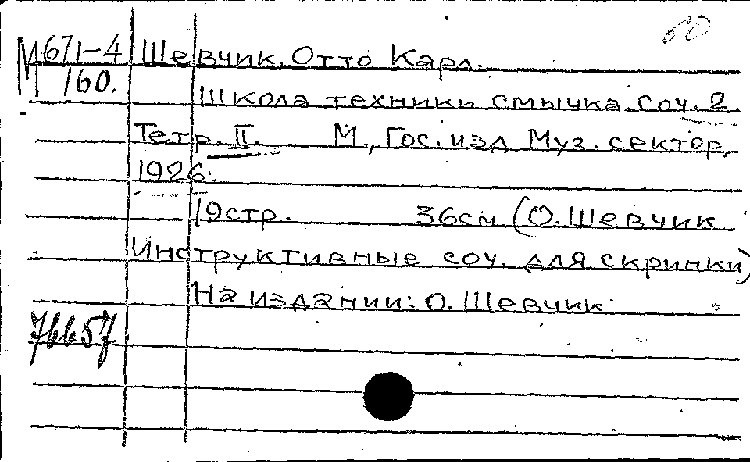 60
М671-4 Шевчик, Отто Карл.
160. Школа техники смычка. соч. 2
Тетр. II. М., Гос. изд Муз. сектор,
1926.
19стр. 36см (О. Шевчик
Инструктивные соч. для скрипки)
На издании: О. Шевчик
76657